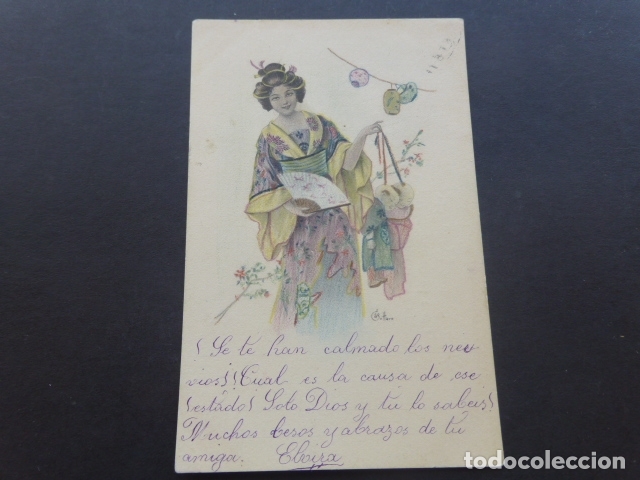 ¿Se te han calmado los ner
vios? ¿Cual es la causa de ese
¿estado? Solo Dios y tu lo sabeis?
Muchos besos y abrazos de tu
amiga. Eloiza
todocoleccion